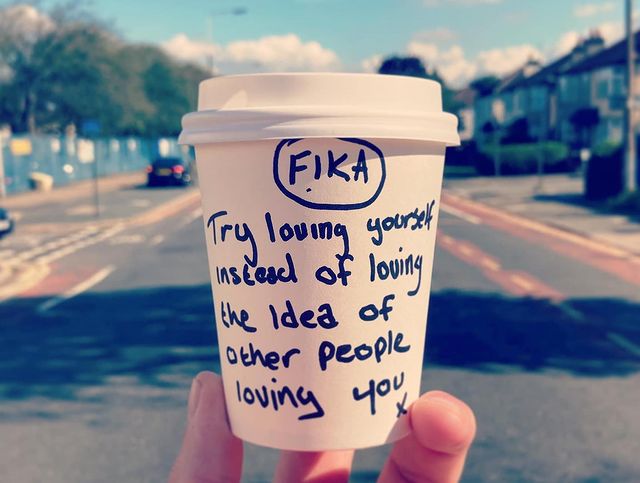 FIKA
Try loving yourself
instead of loving
the idea of
other people
loving you
x